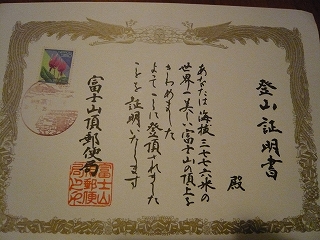 登山証明書
殿
あなたは海抜三七七六米の
世界一美しい富士山の頂上を
きわめました
よってここに登頂されました
ことを証明いたします
富士山頂郵便局